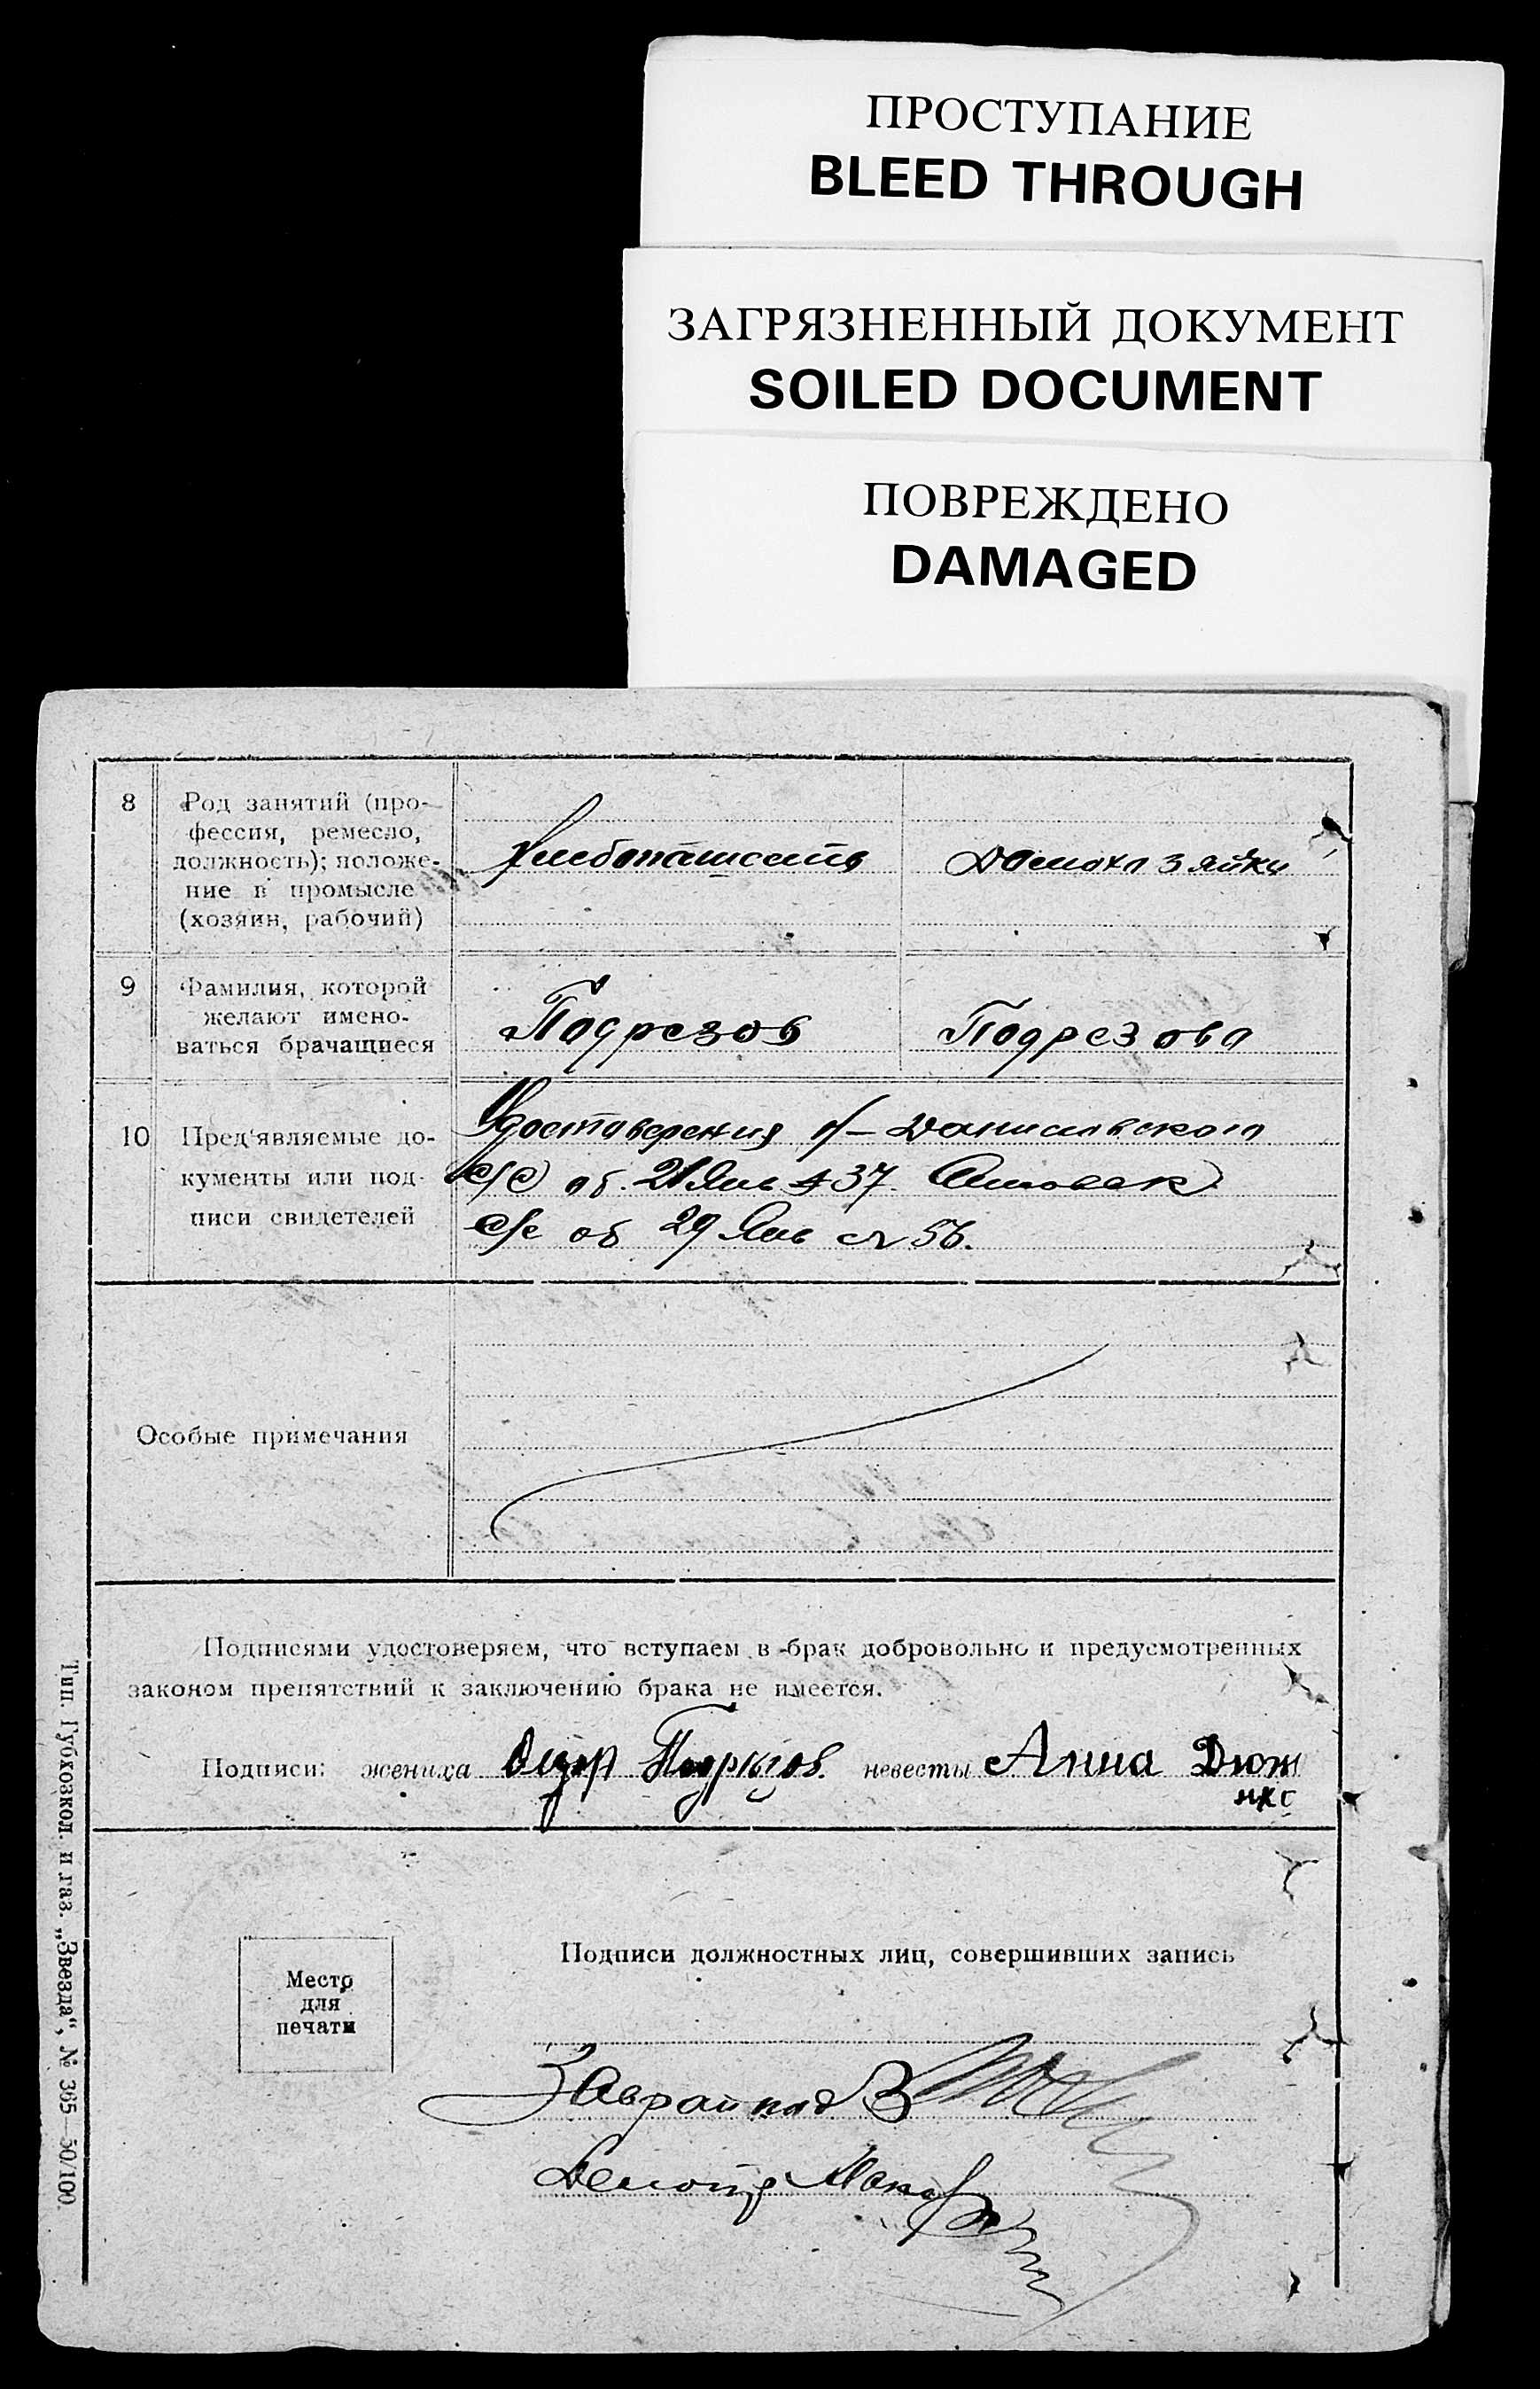 ПРОСТУПАНИЕ
BLEED THROUGH
ЗАГРЯЗНЕННЫЙ ДОКУМЕНТ
SOILED DOCUMENT
ПОВРЕЖДЕНО
DAMAGED
8
Род занятий (про-
фессия, ремесло,
должность); положе-
ние в промысле
(хозяин, рабочий)
Хлебопашество
Домохозяйки
9
Фамилия, которой
желают имено-
ваться брачащиеся
Подрезов
Подрезова
10
Пред'являемые до-
кументы или под-
писи свидетелей
Удостоверения
с/с об. 21 Янв 37.
с/с об 29 Янв 56.
Особые примечания
Подписями удостоверяем, что вступаем в брак добровольно и предусмотренных
законом препятствий к заключению брака не имеется.
Подписи: жениха невесты Анна Дюж
Место
для
печати
Подписи должностных лиц, совершивших запись
Тип. Губхозкол. и газ. „Звезда“, № 365—50/100